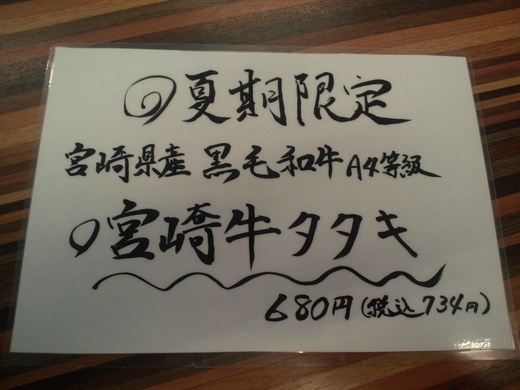 夏期限定
宮崎県産 黒毛和牛 A4等級
宮崎牛タタキ
680円(税込734円)